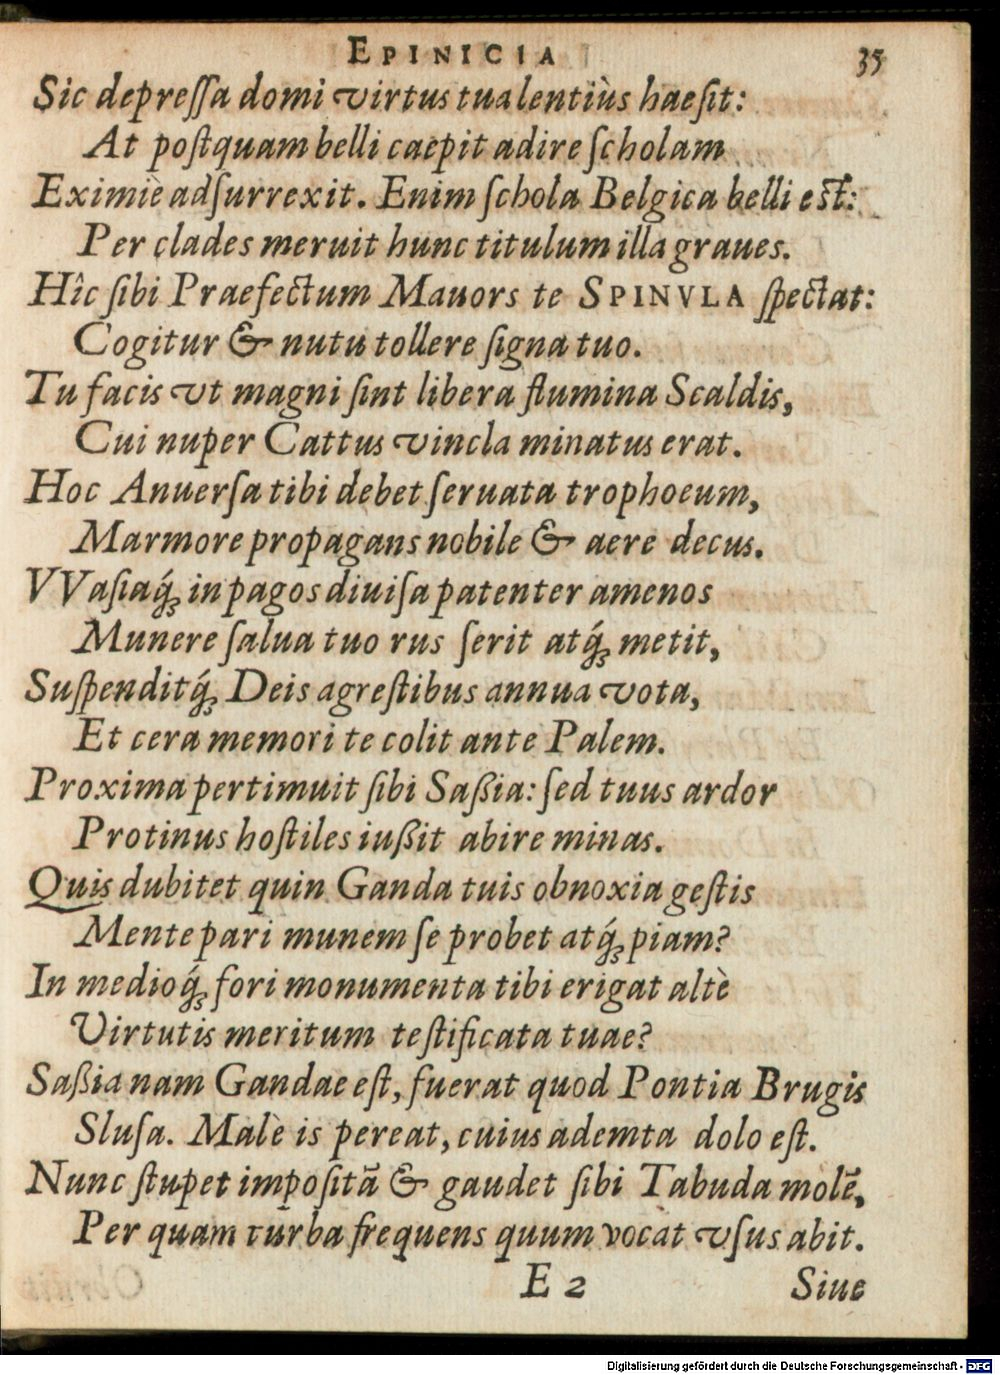 EPINICIA 35
Sic depreſſa domi virtus tua lentiùs haeſit:
At poſtquam belli caepit adire ſcholam
Eximiè adſurrexit. Enim ſchola Belgica belli eſt:
Per clades meruit hunc titulum illa graues.
Hîc ſibi Praefectum Mauors te SPINVLA ſpectat:
Cogitur & nutu tollere ſigna tuo.
Tu facis vt magni ſint libera flumina Scaldis,
Cui nuper Cattus vincla minatus erat.
Hoc Anuerſa tibi debet ſeruata trophoeum,
Marmore propagans nobile & aere decus.
VVaſiaq́; in pagos diuiſa patenter amenos
Munere ſalua tuo rus ſerit atq́; metit,
Suſpenditq́; Deis agreſtibus annua vota,
Et cera memori te colit ante Palem.
Proxima pertimuit ſibi Saßia: ſed tuus ardor
Protinus hoſtiles iußit abire minas.
Quis dubitet quin Ganda tuis obnoxia geſtis
Mente pari munem ſe probet atq́; piam?
In medioq́; fori monumenta tibi erigat altè
Virtutis meritum teſtificata tuae?
Saßia nam Gandae eſt, fuerat quod Pontia Brugis
Sluſa. Malè is pereat, cuius ademta dolo eſt.
Nunc ſtupet impoſitā & gaudet ſibi Tabuda molē,
Per quam turba frequens quum vocat vſus abit.
E 2 Siue
Digitalisierung gefördert durch die Deutsche Forschungsgemeinschaft - DFG